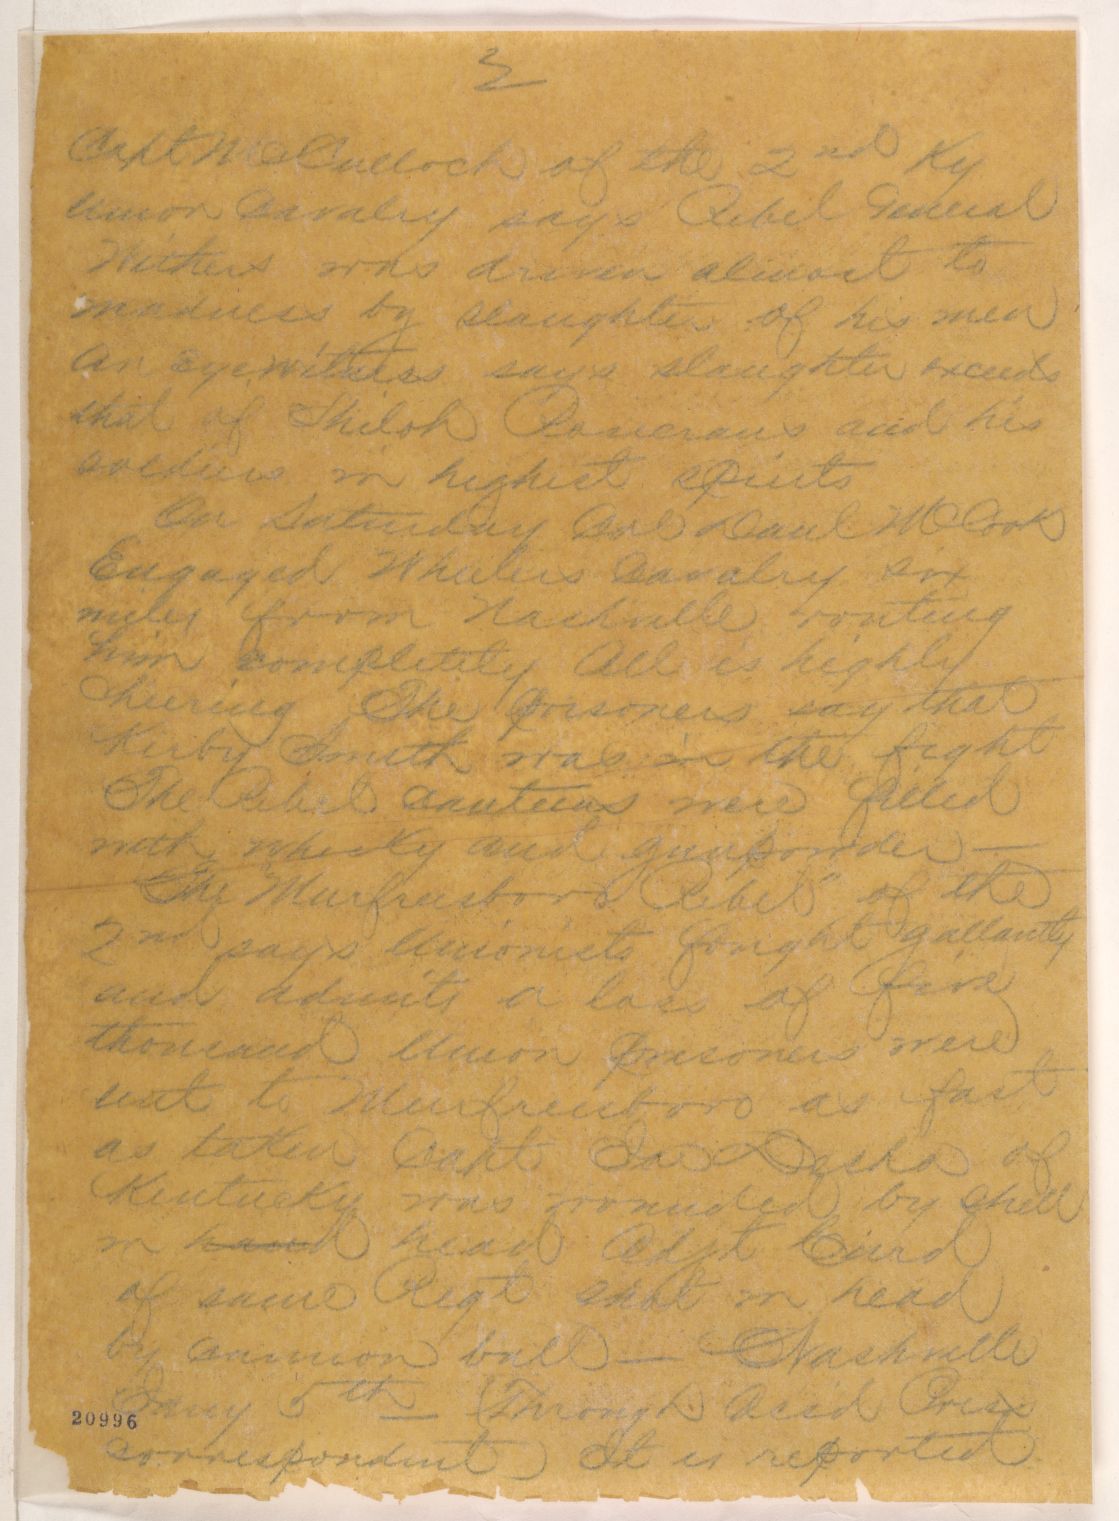 2
Capt McCulloch of the 2nd Ky
Union Cavalry says Rebel General
Withers was driven almost to
madness by slaughter of his men
An Eyewitness says slaughter exceeds
that of Shiloh Rosecrans and his
soldiers in highest spirits
On Saturday Col Danl McCook
Engaged Wheelers Cavalry six
miles from Nashville routing
him completely All is highly
cheering The prisoners say that
Kirby Smith was in the fight
The Rebel canteens were filled
with whisky and gunpowder —
The Murfreesboro Rebel" of the
2nd says Unionists fought gallantly
and admits a loss of five
thousand Union prisoners were
sent to Murfreesboro as fast
as taken Capt of
Kentucky was wounded by shell
in hand head Adjt
of same Regt shot in head
by cannon ball — Nashville
Jany 5th — (Through Assd Press
correspondent) It is reported
20996